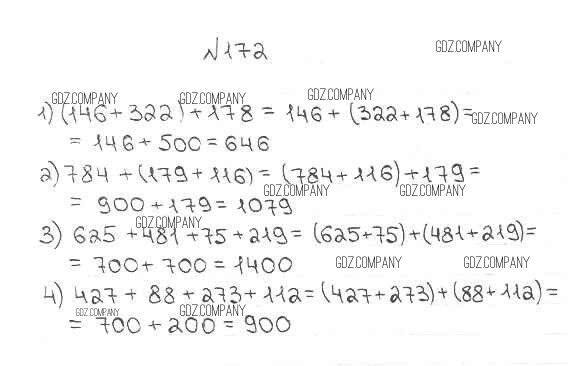 №172
GDZ.COMPANY
GDZ.COMPANY GDZ.COMPANY GDZ.COMPANY
1) (146 + 322) + 178 = 146 + (322 + 178) =
GDZ.COMPANY
= 146 + 500 = 646
2) 784 + (179 + 116) = (784 + 116) + 179 =
GDZ.COMPANY GDZ.COMPANY
= 900 + 179 = 1079
GDZ.COMPANY
3) 625 + 481 + 75 + 219 = (625 + 75) + (481 + 219) =
= 700 + 700 = 1400
GDZ.COMPANY GDZ.COMPANY
4) 427 + 88 + 273 + 112 = (427 + 273) + (88 + 112) =
GDZ.COMPANY GDZ.COMPANY
= 700 + 200 = 900